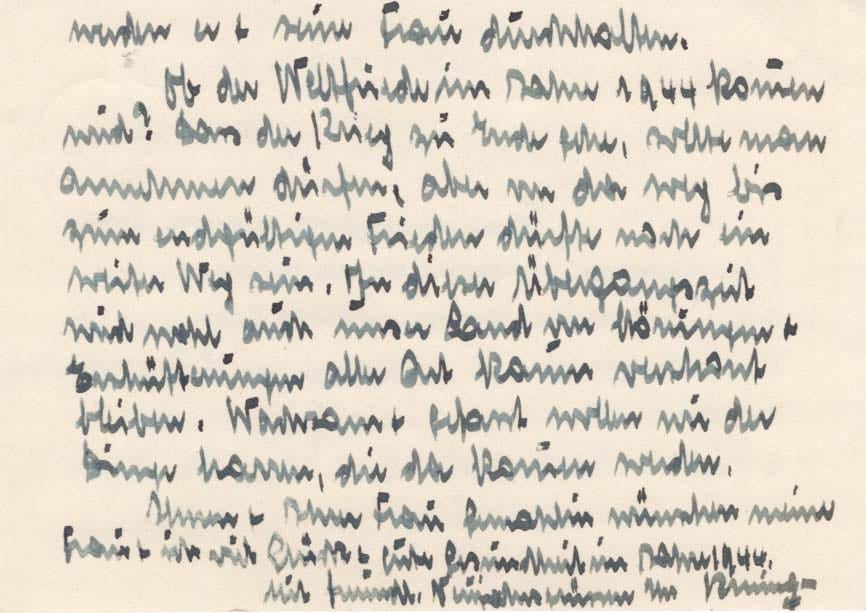 werden er + seine Frau durchhalten.
Ob der Weltfriede im Jahre 1944 kommen
wird? Dass der Krieg zu Ende gehe, sollte man
annehmen dürfen, aber von da weg bis
zum endgültigen Frieden dürfte noch ein
weiter Weg sein. In dieser Übergangszeit
wird wohl auch unser Land von Störungen +
Erschütterungen aller Art kaum verschont
bleiben. Wachsam + gefasst wollen wir der
Dinge harren, die da kommen werden.
Ihnen + Ihrer Frau Gemahlin wünschen meine
Frau + ich viel Glück + gute Gesundheit im Jahre 1944.
Mit freundl. Neujahrsgrüssen Ihr